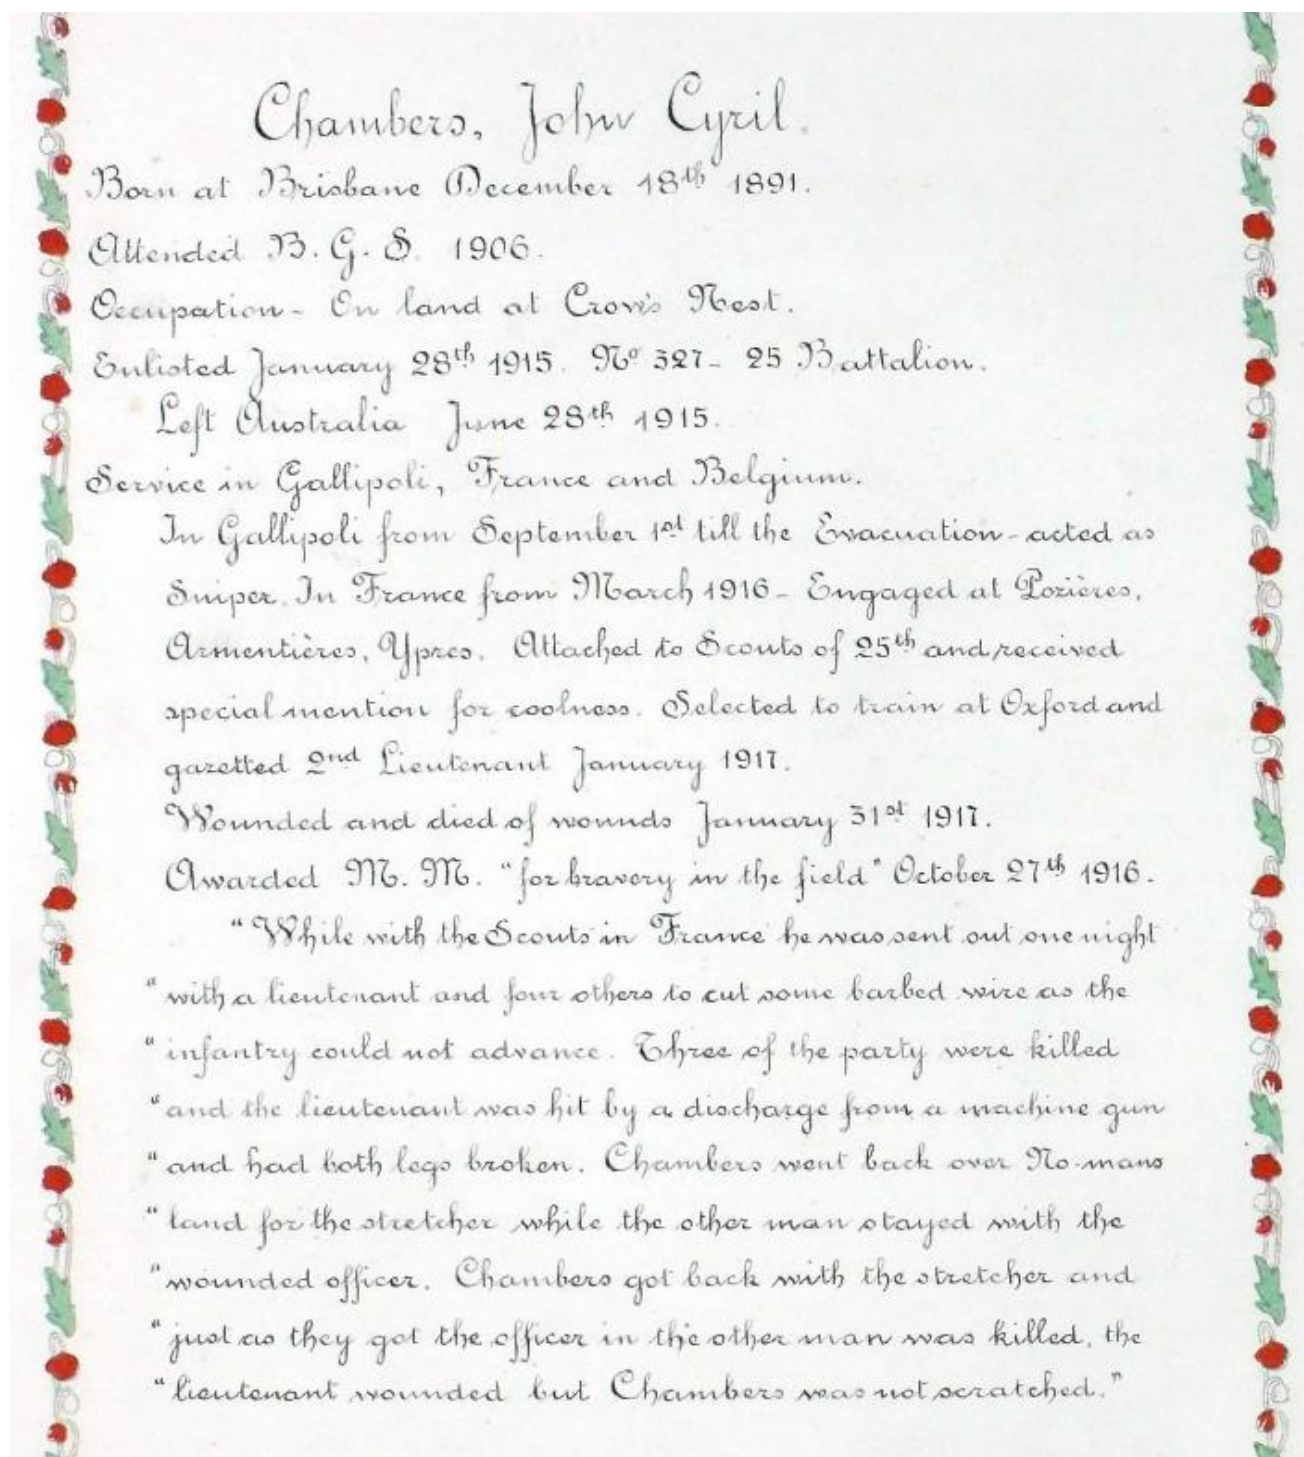 Chambers, John Cyril.
Born at Brisbane December 18th 1891.
Attended B. G. S. 1906.
Occupation - On land at Crow's Nest.
Enlisted January 28th 1915. No 327 - 25 Battalion.
Left Australia June 28th 1915.
Service in Gallipoli, France and Belgium.
In Gallipoli from September 1st till the Evacuation - acted as
Sniper. In France from March 1916 - Engaged at Pozières,
Armentières, Ypres. Attached to Scouts of 25th and received
special mention for coolness. Selected to train at Oxford and
gazetted 2nd Lieutenant January 1917.
Wounded and died of wounds January 31st 1917.
Awarded M. M. "for bravery in the field" October 27th 1916.
"While with the Scouts in France he was sent out one night
"with a lieutenant and four others to cut some barbed wire as the
"infantry could not advance. Three of the party were killed
"and the lieutenant was hit by a discharge from a machine gun
"and had both legs broken. Chambers went back over No-mans
"land for the stretcher while the other man stayed with the
"wounded officer. Chambers got back with the stretcher and
"just as they got the officer in the other man was killed, the
"lieutenant wounded but Chambers was not scratched."